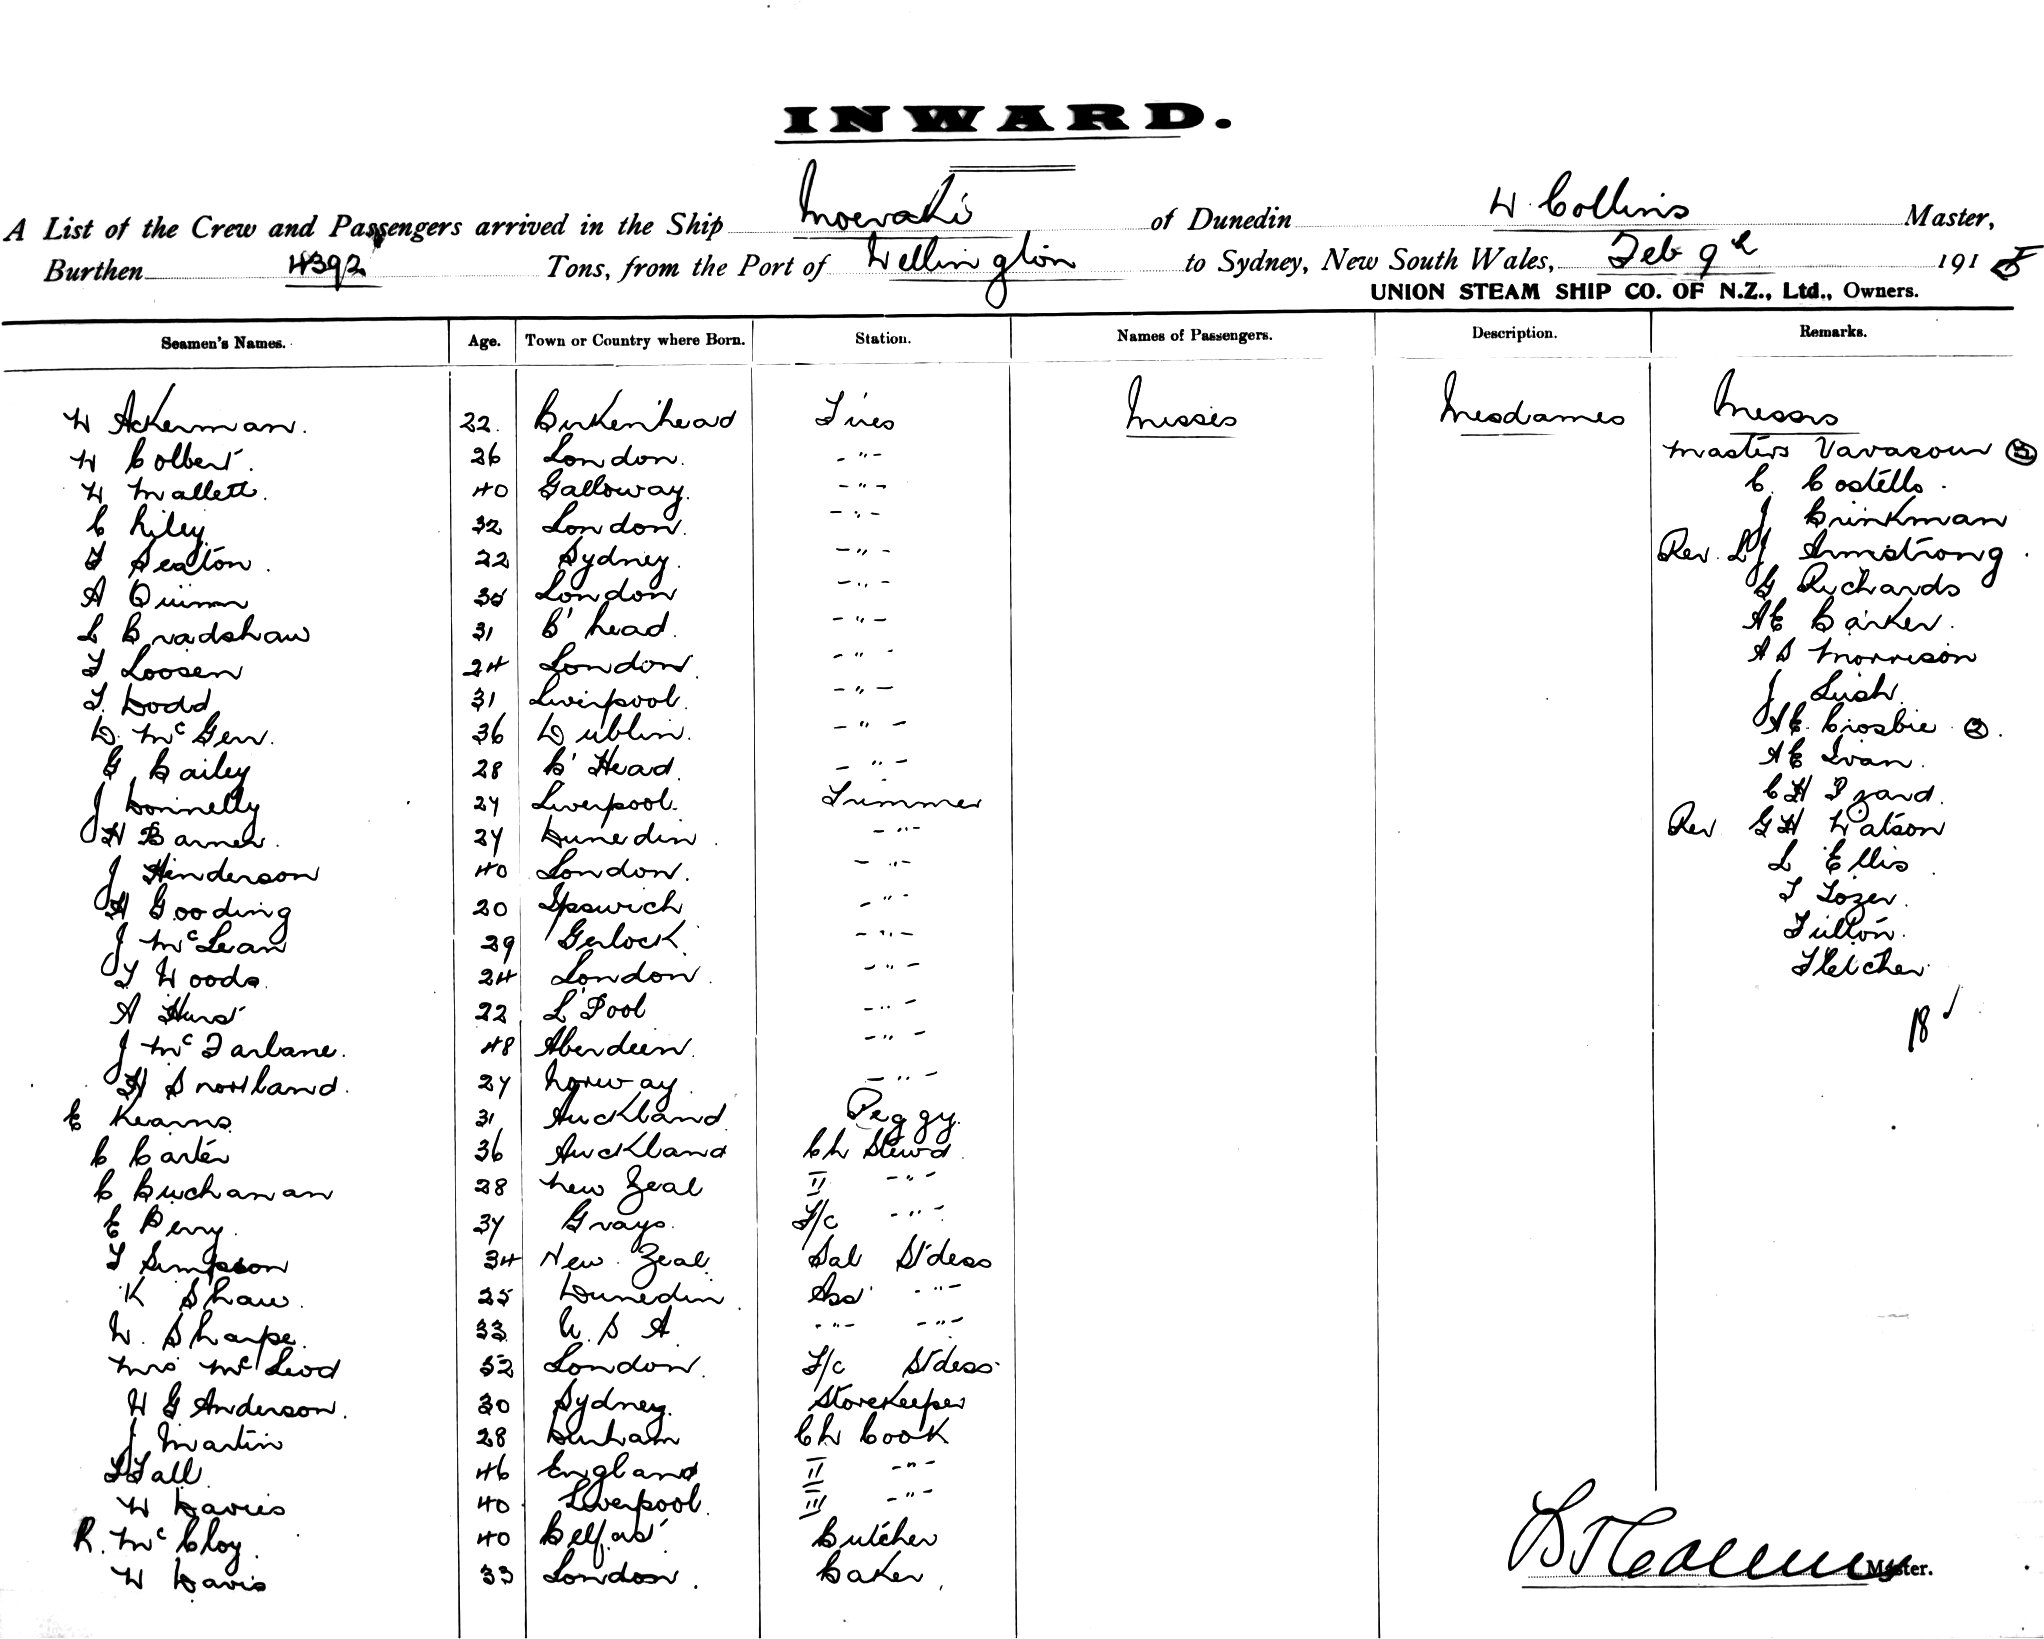 INWARD.
A List of the Crew and Passengers arrived in the Ship Moeraki of Dunedin W. Collins Master,
Burthen 4392 Tons, from the Port of Wellington to Sydney, New South Wales, Feb 9th 1915
UNION STEAM SHIP CO. OF N.Z., Ltd., Owners.
Seamen's Names. Age. Town or Country where Born. Station. Names of Passengers. Description. Remarks.
W Ackerman. 22. Birkenhead Fires Misses Mesdames Messrs
W Colbert. 26 London. -"- Masters Vavasour
W Mallett. 40 Galloway. -"- C. Costello.
C Riley 32 London. -"- J Brinkman
Seaton. 22 Sydney. -"- Rev. L J Armstrong.
A Quinn London -"- G Richards
L Bradshaw 31 B'head. -"- A E Barker.
T Loosen 24 London. -"- A S Morrison
T. Dodd 31 Liverpool. -"- J Lush.
D. McGerr. 36 Dublin. -"- A E Crosbie (2).
G. Bailey 28 B'Head. -"- A E Ivan.
J Donnelly 27 Liverpool. Trimmer C H Izard.
H Barnes. 27 Dunedin. -"- Rev G H Watson
J Henderson 40 London. -"- L Ellis.
H Gooding 20 Ipswich -"- T Tozer.
J McLean 29 -"- Fulton.
T Woods. 24 London. -"- Fletcher
A Hurst 22 L'Pool -"- 18 ✓
J McFarlane. 48 Aberdeen. -"-
H Snortland. 27 Norway. -"-
E Kearns. 31 Auckland Peggy.
C Carter 36 Auckland Ch Stewd.
C Buchanan 28 New Zeal II -"-
E Perry. 37 Grays. F/c -"-
T Simpson 34 New Zeal. Sal St'dess
K Shaw. 25 Dunedin Ass -"-
W. Sharpe. 33 U.S A. -"- -"-
Mrs McLeod 52 London. F/c St'dess.
W G Anderson. 30 Sydney. Storekeeper
J Martin 28 Durham Ch Cook
Fall. 46 England II -"-
W Davies 40 Liverpool. III -"-
R. McCloy. 40 Belfast Butcher
W Davis 33 London. Baker.
Master.